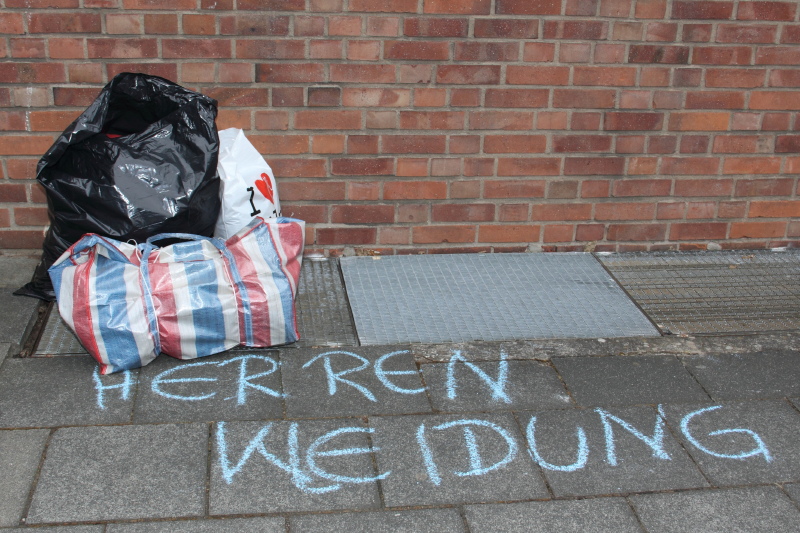 I ♥
HERREN
KLEIDUNG